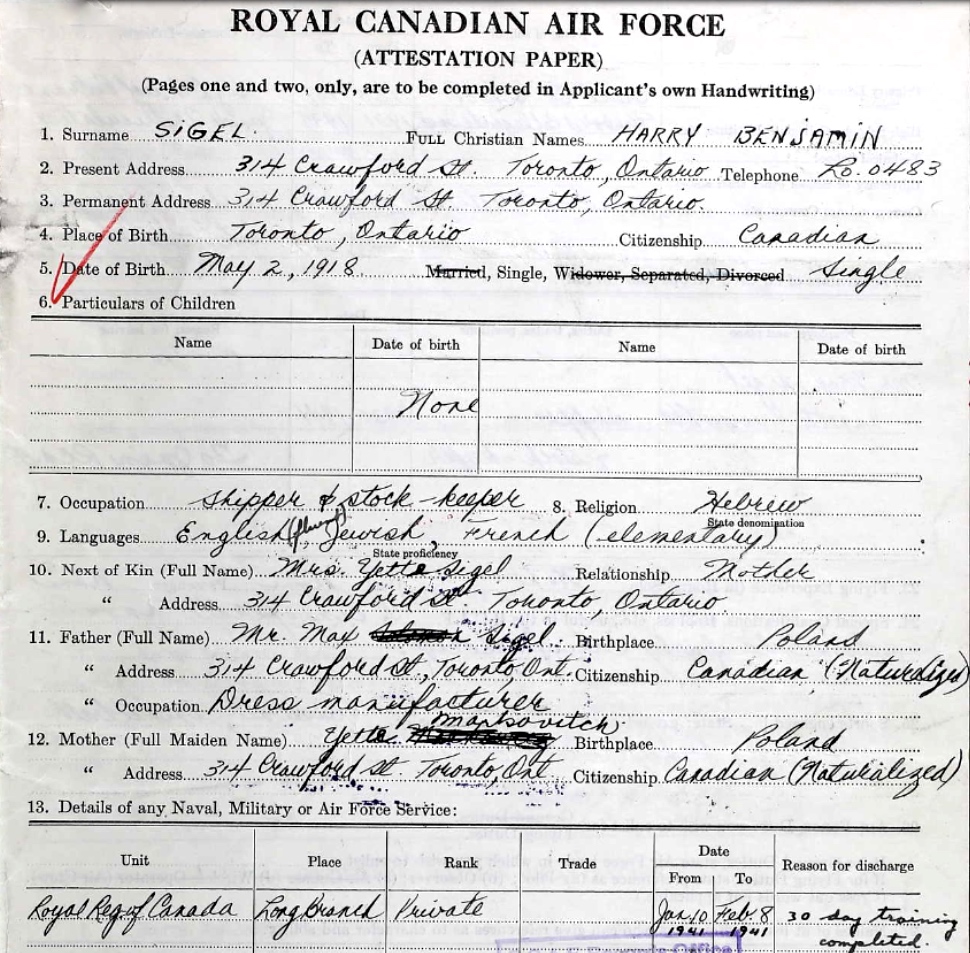 ROYAL CANADIAN AIR FORCE
(ATTESTATION PAPER)
(Pages one and two, only, are to be completed in Applicant's own Handwriting)
1. Surname SIGEL. FULL Christian Names HARRY BENJAMIN
2. Present Address 314 Crawford St. Toronto, Ontario Telephone Lo. 0483
3. Permanent Address 314 Crawford St. Toronto, Ontario.
4. Place of Birth Toronto, Ontario Citizenship Canadian
5. Date of Birth May 2, 1918. Married, Single, Widower, Separated, Divorced Single
6. Particulars of Children
Name Date of birth Name Date of birth
None
7. Occupation Shipper & stock-keeper 8. Religion Hebrew
State denomination
9. Languages English (fluent) Jewish, French (elementary)
State proficiency
10. Next of Kin (Full Name) Mrs. Yette Sigel Relationship Mother
" Address 314 Crawford St. Toronto, Ontario.
11. Father (Full Name) Mr. Max Sigel. Birthplace Poland
" Address 314 Crawford St., Toronto, Ont. Citizenship Canadian (Naturalized)
" Occupation Dress manufacturer
12. Mother (Full Maiden Name) Yette Markovitch Birthplace Poland
" Address 314 Crawford St. Toronto, Ont Citizenship Canadian (Naturalized)
13. Details of any Naval, Military or Air Force Service:
Unit Place Rank Trade Date From To Reason for discharge
Royal Reg of Canada Long Branch Private Jan 10 1941 Feb 8 1941 30 day training completed.
Office